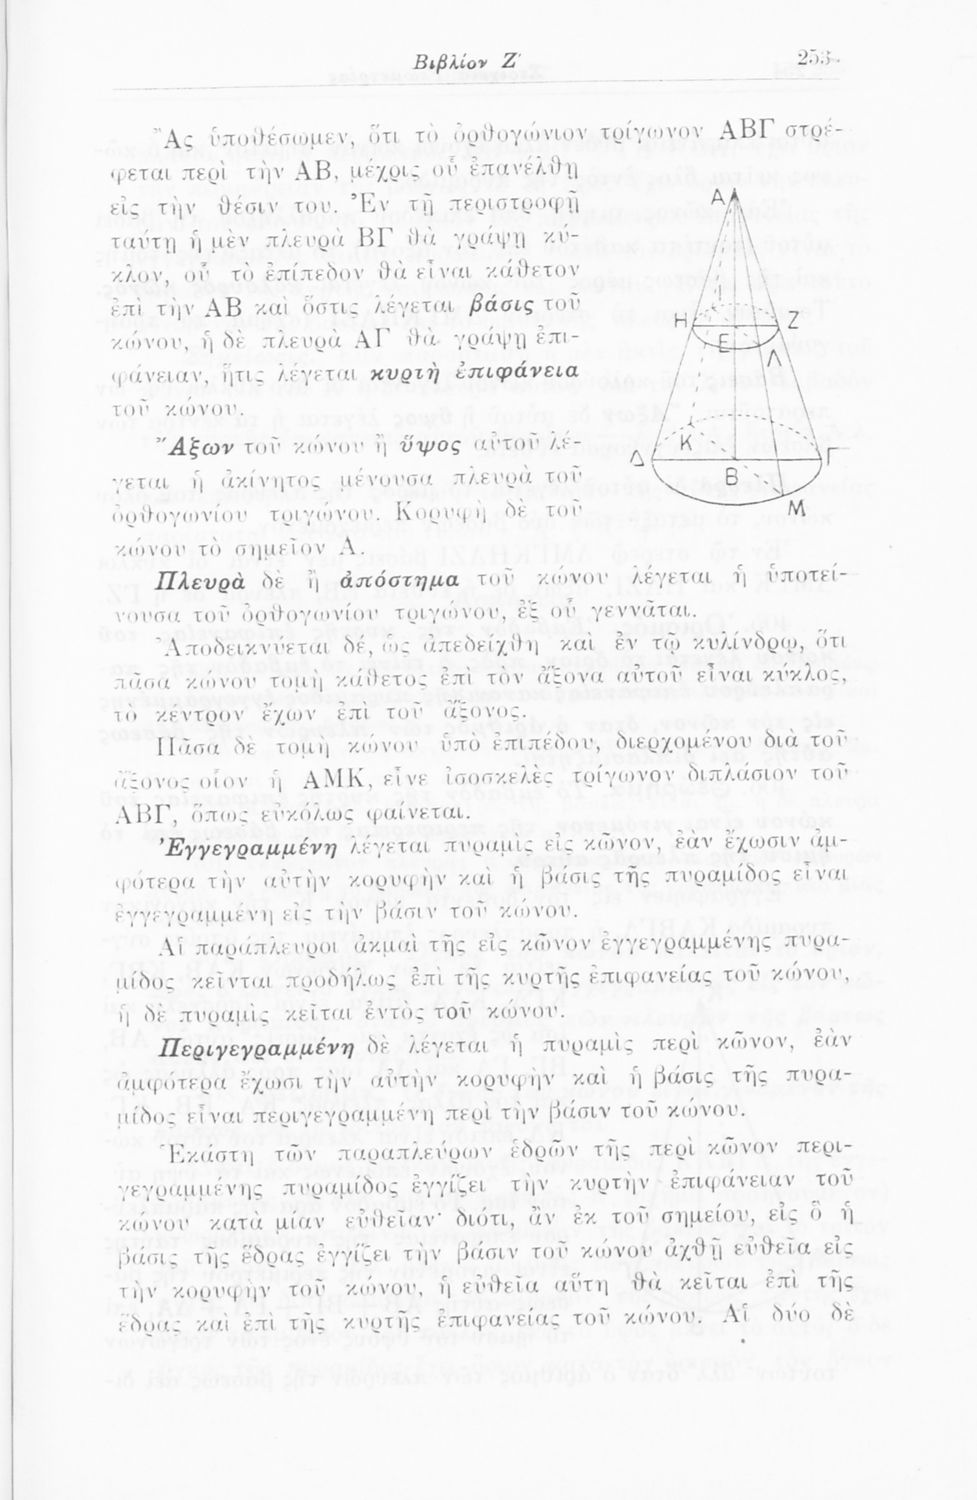 Βιβλίον Ζ΄ 253
Ἂς ὑποθέσωμεν, ὅτι τὸ ὀρθογώνιον τρίγωνον ΑΒΓ στρέ-
φεται περὶ τὴν ΑΒ, μέχρις οὗ ἐπανέλθῃ
εἰς τὴν θέσιν του. Ἐν τῇ περιστροφῇ
ταύτῃ ἡ μὲν πλευρὰ ΒΓ θὰ γράψῃ κύ-
κλον, οὗ τὸ ἐπίπεδον θὰ εἶναι κάθετον
ἐπὶ τὴν ΑΒ καὶ ὅστις λέγεται βάσις τοῦ
κώνου, ἡ δὲ πλευρὰ ΑΓ θὰ γράψῃ ἐπι-
φάνειαν, ἥτις λέγεται κυρτὴ ἐπιφάνεια
τοῦ κώνου.
Ἄξων τοῦ κώνου ἢ ὕψος αὐτοῦ λέ-
γεται ἡ ἀκίνητος μένουσα πλευρὰ τοῦ
ὀρθογωνίου τριγώνου. Κορυφὴ δὲ τοῦ
κώνου τὸ σημεῖον Α.
Α
Η
Ζ
Ε
Λ
Κ
Δ
Γ
Β
Μ
Πλευρὰ δὲ ἢ ἀπόστημα τοῦ κώνου λέγεται ἡ ὑποτεί-
νουσα τοῦ ὀρθογωνίου τριγώνου, ἐξ οὗ γεννᾶται.
Ἀποδεικνύεται δέ, ὡς ἀπεδείχθη καὶ ἐν τῷ κυλίνδρῳ, ὅτι
πᾶσα κώνου τομὴ κάθετος ἐπὶ τὸν ἄξονα αὐτοῦ εἶναι κύκλος,
τὸ κέντρον ἔχων ἐπὶ τοῦ ἄξονος.
Πᾶσα δὲ τομὴ κώνου ὑπὸ ἐπιπέδου, διερχομένου διὰ τοῦ
ἄξονος οἷον ἡ ΑΜΚ, εἶνε ἰσοσκελὲς τρίγωνον διπλάσιον τοῦ
ΑΒΓ, ὅπως εὐκόλως φαίνεται.
Ἐγγεγραμμένη λέγεται πυραμὶς εἰς κῶνον, ἐὰν ἔχωσιν ἀμ-
φότερα τὴν αὐτὴν κορυφὴν καὶ ἡ βάσις τῆς πυραμίδος εἶναι
ἐγγεγραμμένη εἰς τὴν βάσιν τοῦ κώνου.
Αἱ παράπλευροι ἀκμαὶ τῆς εἰς κῶνον ἐγγεγραμμένης πυρα-
μίδος κεῖνται προδήλως ἐπὶ τῆς κυρτῆς ἐπιφανείας τοῦ κώνου,
ἡ δὲ πυραμὶς κεῖται ἐντὸς τοῦ κώνου.
Περιγεγραμμένη δὲ λέγεται ἡ πυραμὶς περὶ κῶνον, ἐὰν
ἀμφότερα ἔχωσι τὴν αὐτὴν κορυφὴν καὶ ἡ βάσις τῆς πυρα-
μίδος εἶναι περιγεγραμμένη περὶ τὴν βάσιν τοῦ κώνου.
Ἑκάστη τῶν παραπλεύρων ἑδρῶν τῆς περὶ κῶνον περι-
γεγραμμένης πυραμίδος ἐγγίζει τὴν κυρτὴν ἐπιφάνειαν τοῦ
κώνου κατὰ μίαν εὐθεῖαν· διότι, ἂν ἐκ τοῦ σημείου, εἰς ὃ ἡ
βάσις τῆς ἕδρας ἐγγίζει τὴν βάσιν τοῦ κώνου ἀχθῇ εὐθεῖα εἰς
τὴν κορυφὴν τοῦ κώνου, ἡ εὐθεῖα αὕτη θὰ κεῖται ἐπὶ τῆς
ἕδρας καὶ ἐπὶ τῆς κυρτῆς ἐπιφανείας τοῦ κώνου. Αἱ δύο δὲ